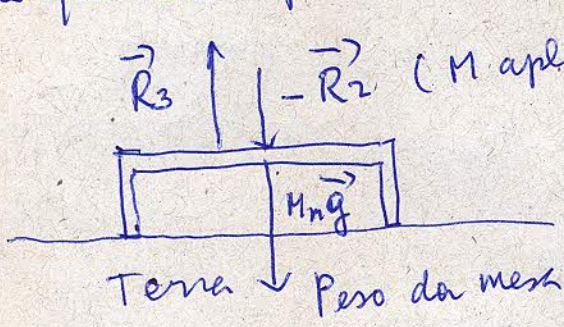 R⃗3 -R⃗2 (M apl
Mng⃗
Terra Peso da mesa